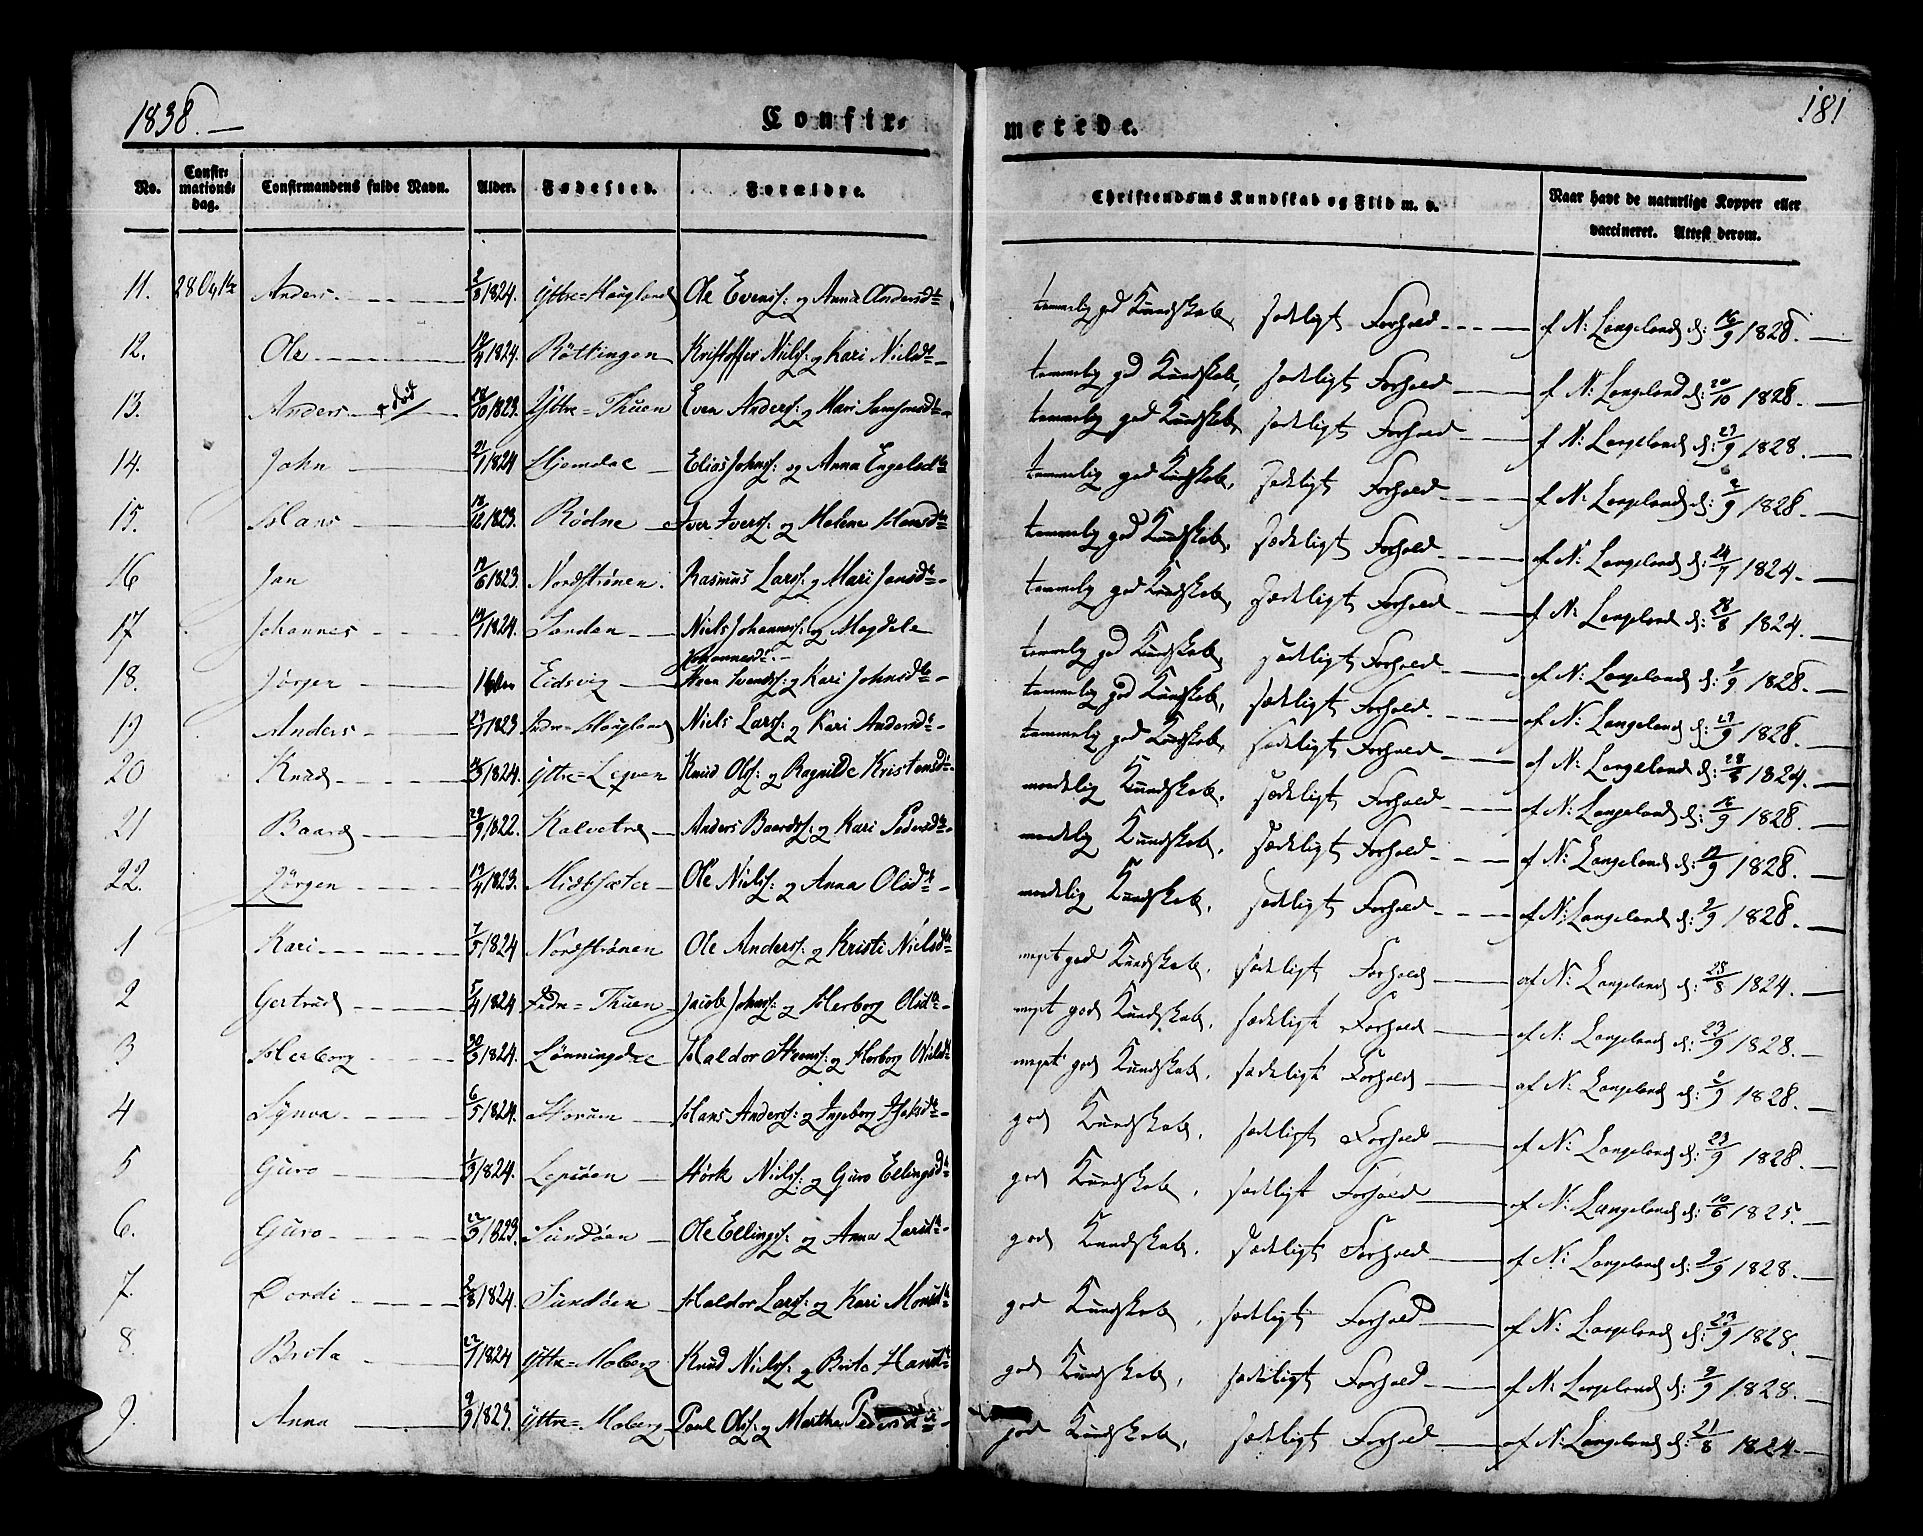 1838. —
Confir-
merede.
181
No.
Confir-
mations-
dag.
Confirmandens fulde Navn.
Alder.
Fødested.
Forældre.
Christendoms Kundskab og Flid m. v.
Naar havt de naturlige Kopper eller
vaccineret. Attest derom.
11. 28 Anders 2/8 1824. Yttre=Haugland Ole Evens: og Anna Andersd: temmelig god Kundskab, sædeligt Forhold af N: Langeland d: 16/9 1828.
12. Ole 1824. Röttingen Kristoffer Niels: og Kari Nielsd: temmelig god Kundskab, sædeligt Forhold af N: Langeland d: 20/10 1828.
13. Anders død 18/10 1823. Yttre=Thuen Even Anders: og Mari Samsonsd: temmelig god Kundskab, sædeligt Forhold af N: Langeland d: 23/9 1828.
14. John 21/1 1824 Hjemdal Elias Johns: og Anna Engelsd: temmelig god Kundskab, sædeligt Forhold af N: Langeland d: 2/9 1828.
15. Hans 13/12 1823. Rödne Iver Ivers: og Malene Hansd: temmelig god Kundskab, sædeligt Forhold af N: Langeland d: 24/7 1824.
16 Jan 12/6 1823. Nordströnen. Rasmus Lars: og Mari Jansd: temmelig god Kundskab, sædeligt Forhold af N: Langeland d: 28/8 1824.
17 Johannes 19/1 1824. Sanden Niels Johanness: og Magdele temmelig god Kundskab, sædeligt Forhold af N: Langeland d: 2/9 1828.
Johannesd:
18. Jörgen Eidsvig Svends: og Kari Johnsd: temmelig god Kundskab, sædeligt Forhold af N: Langeland d: 27/9 1828.
19 Anders 1823 Indre=Haugland Niels Lars: og Kari Andersd: temmelig god Kundskab, sædeligt Forhold af N: Langeland d: 28/8 1824.
20 Knud 1824. Yttre=Lepen Knud Ols: og Ragnilde Kristensd: maadelig Kundskab, sædeligt Forhold af N: Langeland d: 16/9 1828.
21 Baard 29/9 1822. Kalvetræ Anders Baards: og Kari Pedersd: maadelig Kundskab, sædeligt Forhold af N: Langeland d: 1828.
22. Jörgen 13/4 1823. Midtsæter Ole Niels: og Anna Olsd: maadelig Kundskab, sædeligt Forhold af N: Langeland d: 2/9 1828.
1 Kari 7/5 1824 Nordströnen Ole Anders: og Kristi Nielsd: meget god Kundskab, sædeligt Forhold af N: Langeland d: 28/8 1824.
2 Gertrud 5/4 1824 Indre=Thuen Jacob Johns: og Herborg Olsd: meget god Kundskab, sædeligt Forhold af N: Langeland d: 23/9 1828.
3 Herborg 1824. Lönningdal Haldor Steens: og Herborg Nielsd: meget god Kundskab, sædeligt Forhold af N: Langeland d: 2/9 1828.
4 Synva 6/5 1824. Horum Hans Anders: og Ingeborg Isaksd: god Kundskab, sædeligt Forhold af N: Langeland d: 23/9 1828.
5 Guro 1824. Lepsöen Störk Niels: og Guro Ellingsd: god Kundskab, sædeligt Forhold af N: Langeland d: 10/6 1825.
6. Guro 22/9 1823. Sundöen Ole Ellings: og Anna Larsd: god Kundskab, sædeligt Forhold af N: Langeland d: 2/9 1828.
7. Dordi 2/8 1824. Sundöen Haldor Lars: og Kari Monsd: god Kundskab, sædeligt Forhold af N: Langeland d: 23/9 1828.
8. Brita 22/1 1824 Yttre=Moberg Knud Niels: og Brita Hansd: god Kundskab, sædeligt Forhold af N: Langeland d: 2/9 1828.
9. Anna 9/9 1823. Yttre=Moberg Poul Ols: og Martha Pedersd: god Kundskab, sædeligt Forhold af N: Langeland d: 21/8 1824.